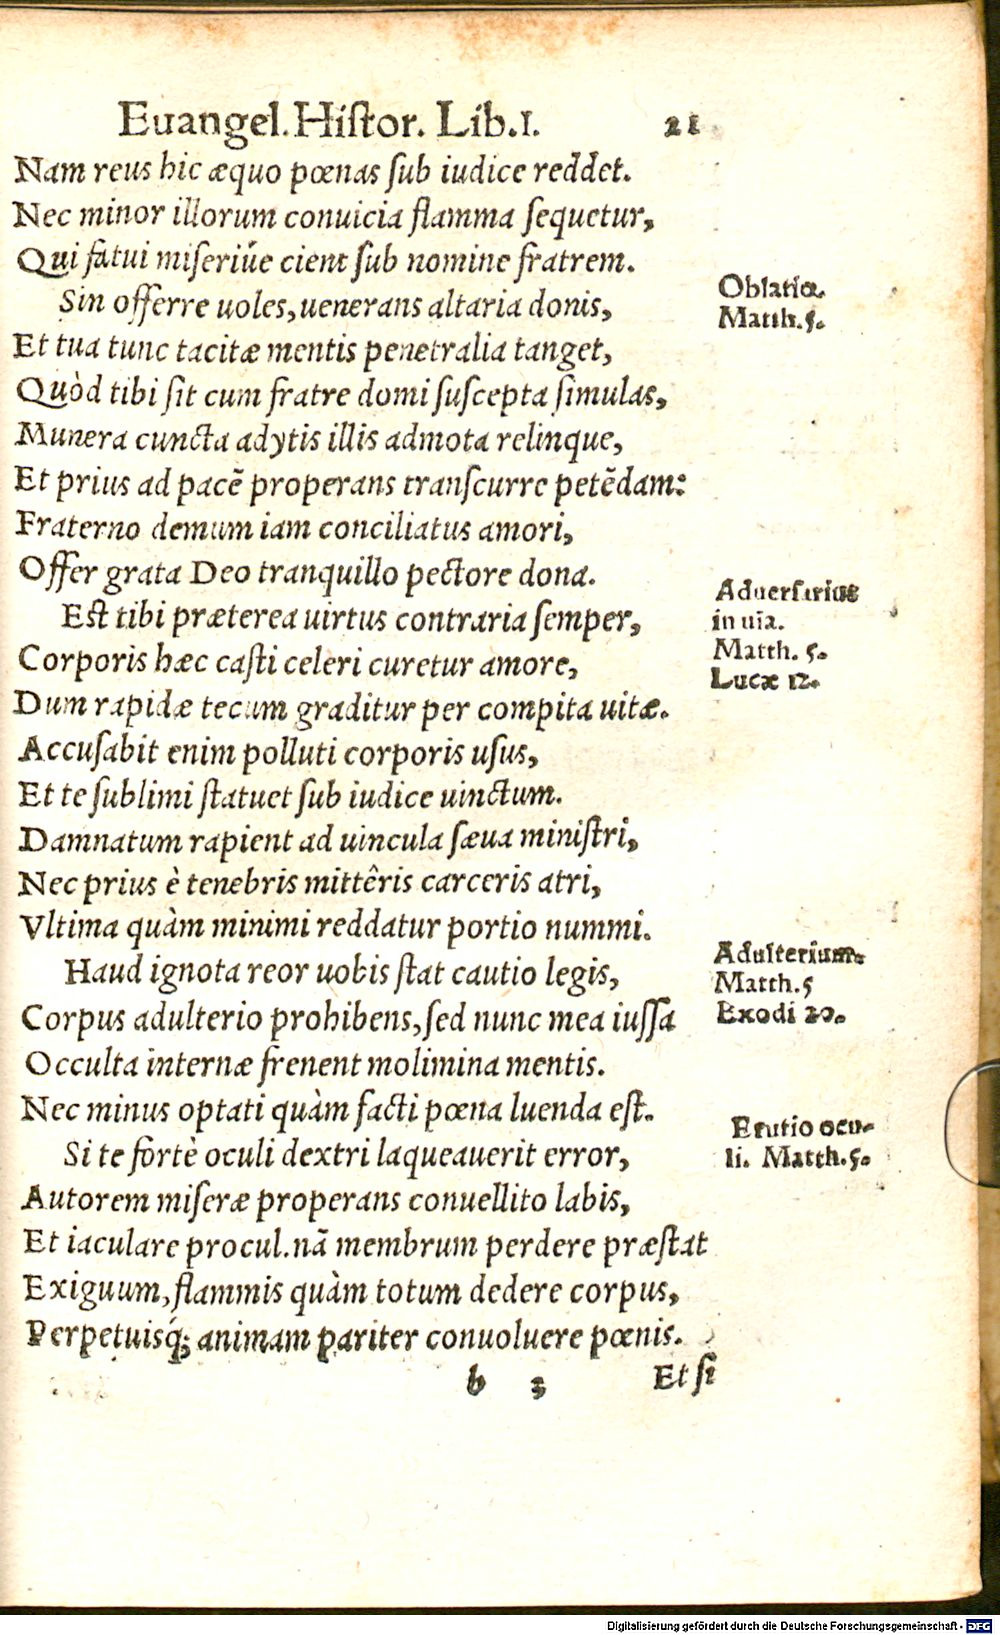 Euangel. Histor. Lib. I. 21
Nam reus hic æquo pœnas ſub iudice reddet.
Nec minor illorum conuicia flamma ſequetur,
Qui fatui miſeriúe cient ſub nomine fratrem.
Sin offerre uoles, uenerans altaria donis,
Oblatio.
Matth. 5.
Et tua tunc tacitæ mentis penetralia tanget,
Quòd tibi ſit cum fratre domi ſuſcepta ſimulas,
Munera cuncta adytis illis admota relinque,
Et prius ad pacẽ properans tranſcurre petẽdam:
Fraterno demum iam conciliatus amori,
Offer grata Deo tranquillo pectore dona.
Est tibi præterea uirtus contraria ſemper,
Aduerſarius
in uia.
Matth. 5.
Lucæ 12.
Corporis hæc caſti celeri curetur amore,
Dum rapidæ tecum graditur per compita uitæ.
Accuſabit enim polluti corporis uſus,
Et te ſublimi ſtatuet ſub iudice uinctum.
Damnatum rapient ad uincula ſæua miniſtri,
Nec prius è tenebris mittêris carceris atri,
Vltima quàm minimi reddatur portio nummi.
Haud ignota reor uobis ſtat cautio legis,
Adulterium.
Matth. 5
Exodi 20.
Corpus adulterio prohibens, ſed nunc mea iuſſa
Occulta internæ frenent molimina mentis.
Nec minus optati quàm facti pœna luenda eſt.
Si te fortè oculi dextri laqueauerit error,
Erutio ocu-
li. Matth. 5.
Autorem miſeræ properans conuellito labis,
Et iaculare procul. nã membrum perdere præſtat
Exiguum, flammis quàm totum dedere corpus,
Perpetuisq́; animam pariter conuoluere pœnis.
b 3 Et ſi
Digitalisierung gefördert durch die Deutsche Forschungsgemeinschaft - DFG